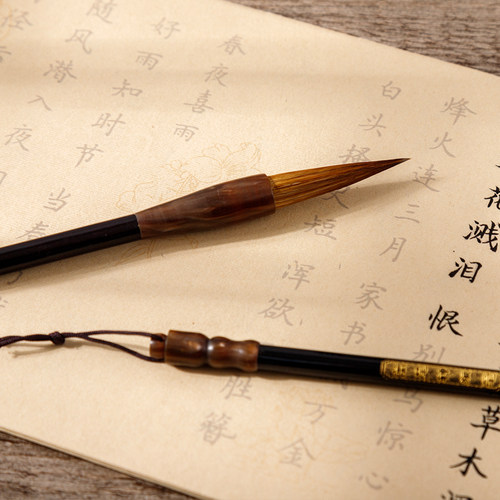 草木
花溅泪恨别鸟惊心
烽火连三月家书万金
白头搔短浑欲胜簪
春夜喜雨
好雨知时节当春
随风潜入夜
径